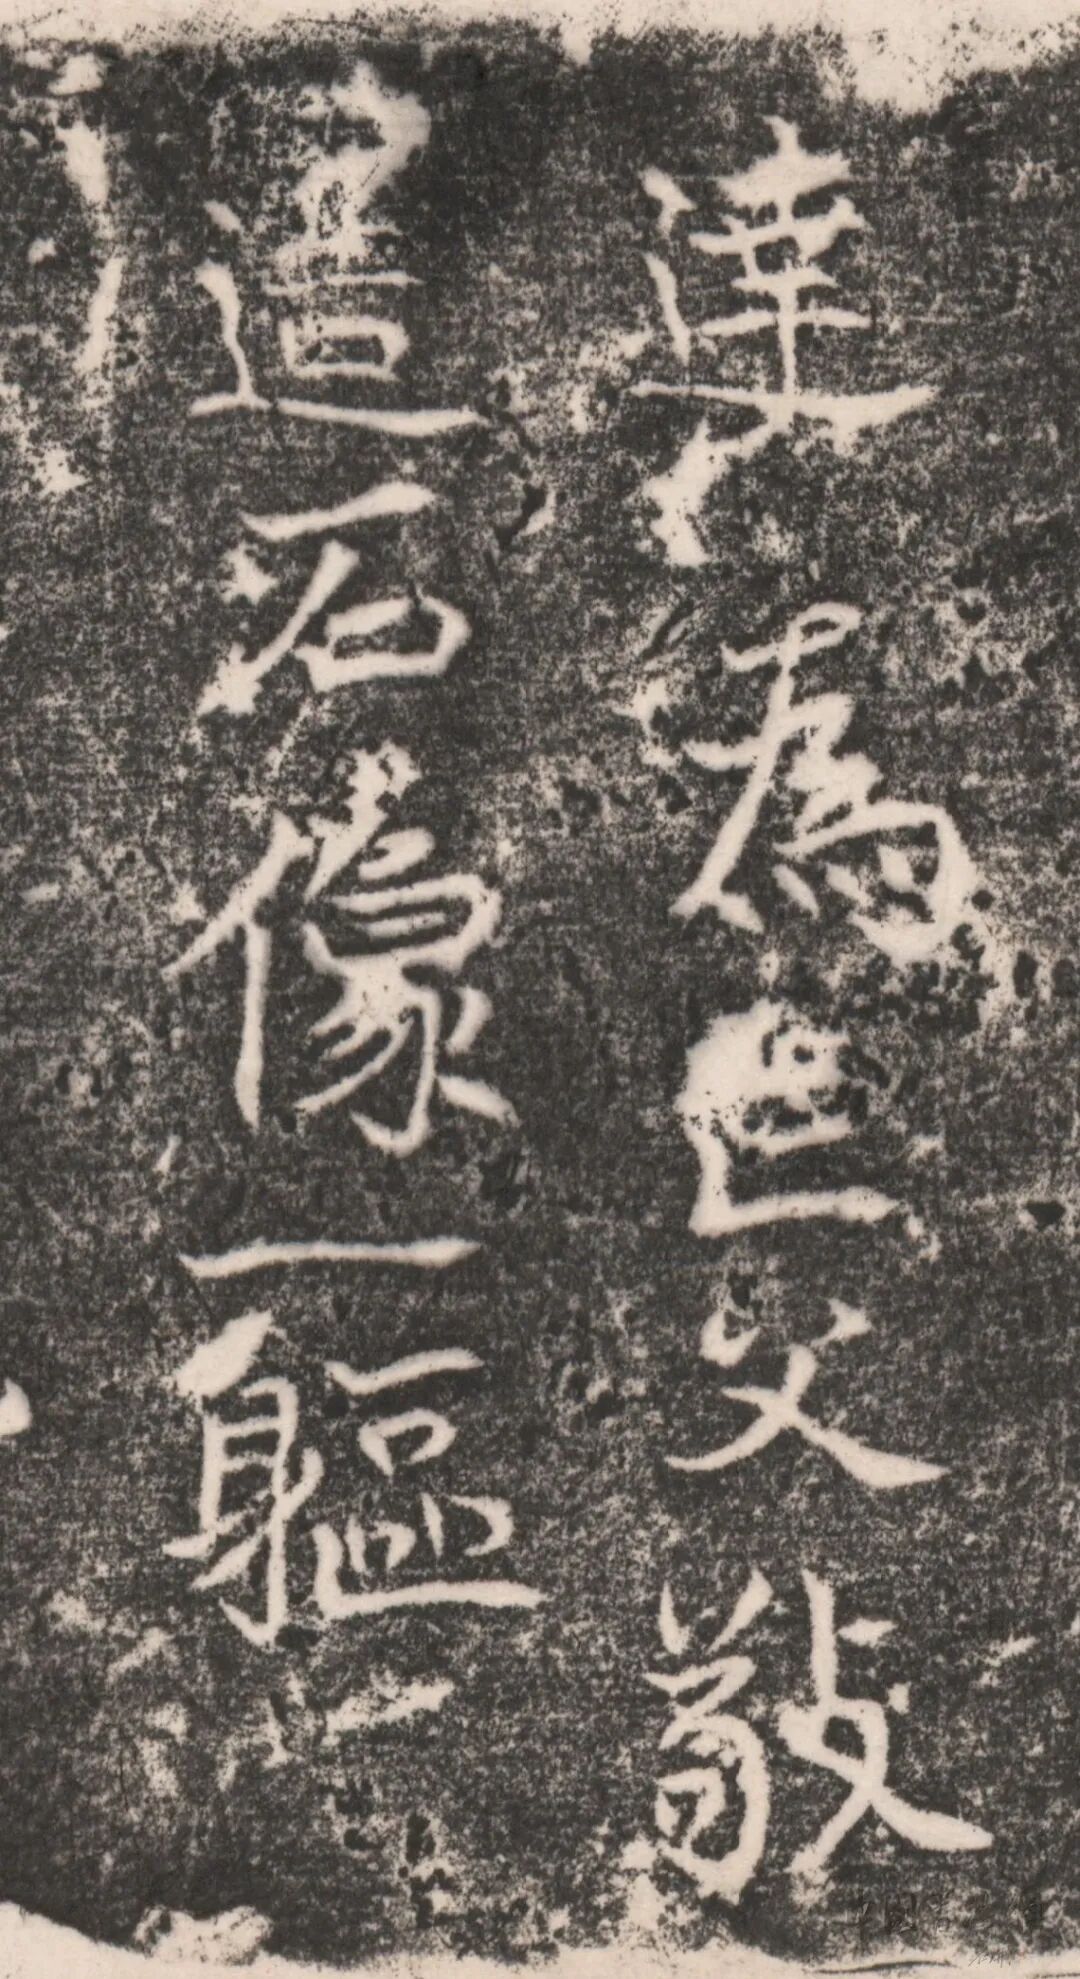 達為亡父敬
造石像一軀